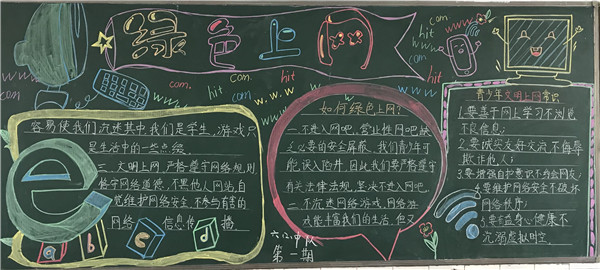 绿色上网
com
www
www
com.
hit
com
www
com.
hit
com
hit
www
com.
hit
w.w.w
容易使我们沉迷其中我们是学生，游戏只
是生活中的一些点缀
三、文明上网，严格遵守网络规则，
恪守网络道德，不黑他人网站，自
觉维护网络安全，不参与有害的
网络 信息传 播
如何绿色上网?
一、不进入网吧，营业性网吧缺
乏必要的安全屏蔽，我们青少年可
能误入陷井，因此我们要严格遵守
有关法律法规，坚决不进入网吧。
二、不沉迷网络游戏，网络游
戏能丰富我们的生活，但又
青少年文明上网常识
1.要善于网上学习不浏览
不良信息;
2.要诚实友好交流不侮辱
欺诈他人;
3.要增强自护意识不约会网友;
4.要维护网络安全不破坏
网络秩序;
5.要有益身心健康不
沉溺虚拟时空
六(2)中队
第一期